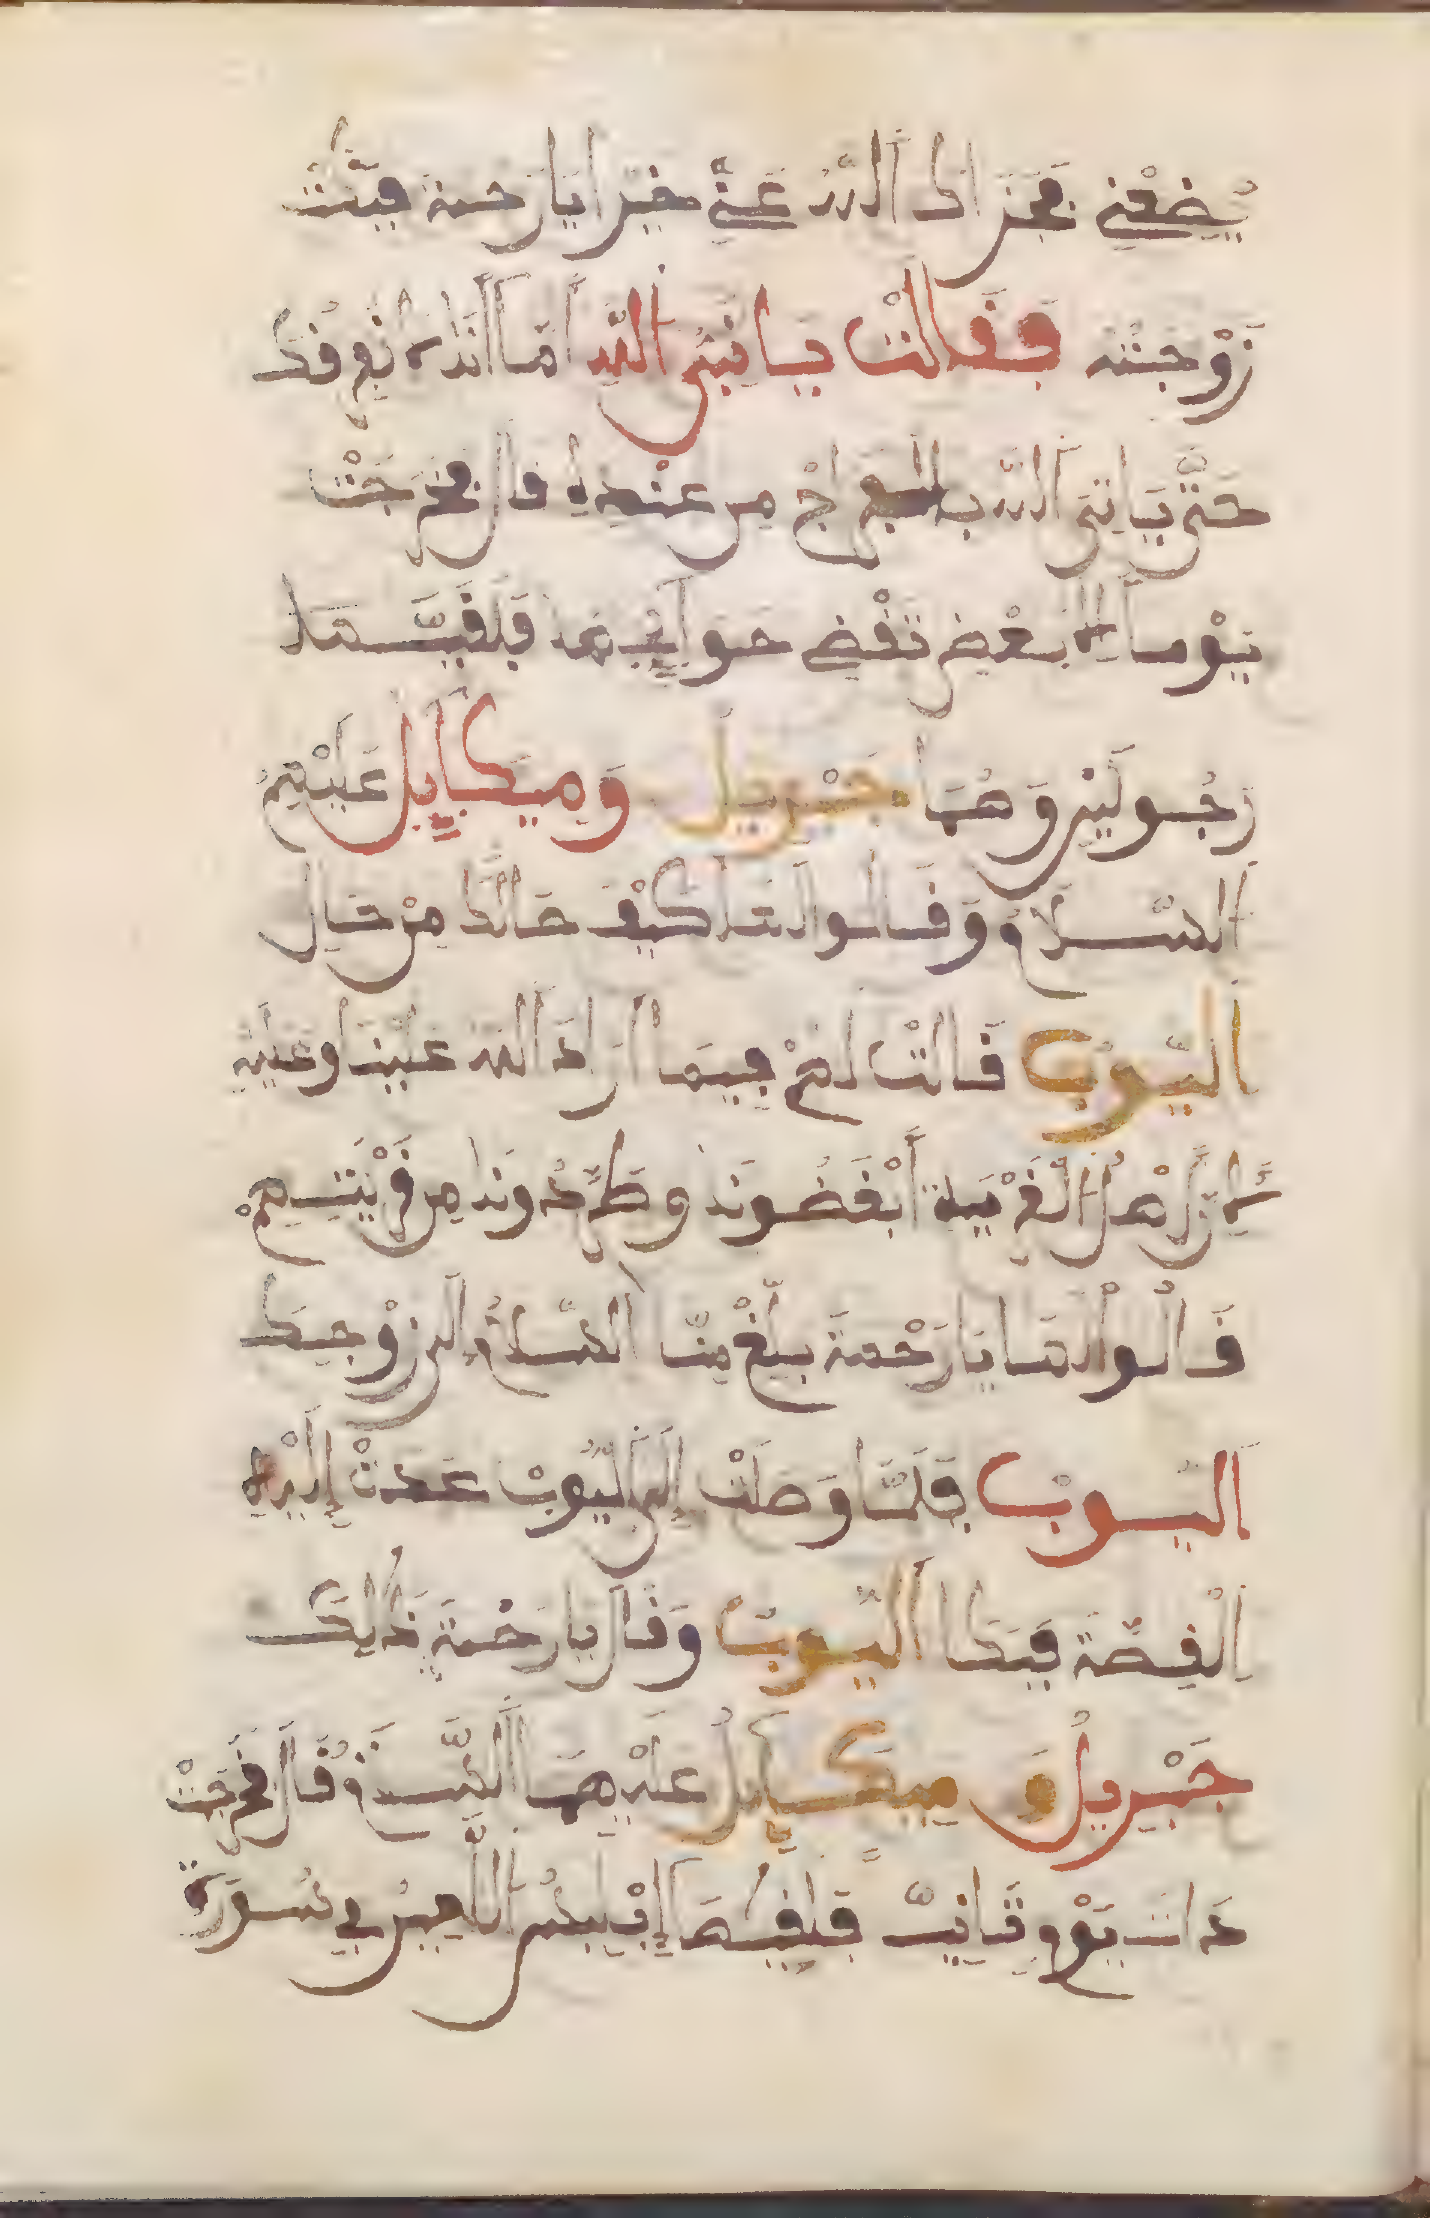 يضعني فجزاك الله عني خيرا يا رحمة فبكت
زوجته فقالت يا نبي الله أما أنا لا نفرقك
حتى ياتي الله بالفرج من عنده قال فخرجت
يوما لبعض تقضي حوايجها فلقيها
رجولين وهما جبريل وميكايل عليهم
السلام وقالوا لها كيف حالك من حال
اليوب قالت لهم فيما أراد الله علينا وعليه
لان أهل القرية أبغضونا وطردونا من قريتهم
قالوا لها يا رحمة بلغ منا السلام إلى زوجك
اليوب فلما وصلت إلى اليوب عدت إليه
القصة فبكا اليوب وقال يا رحمة ذلك
جبريل وميكايل عليهما السلام قال فخرجت
ذات يوم ثاني فلقيها إبليس اللعين في سورة